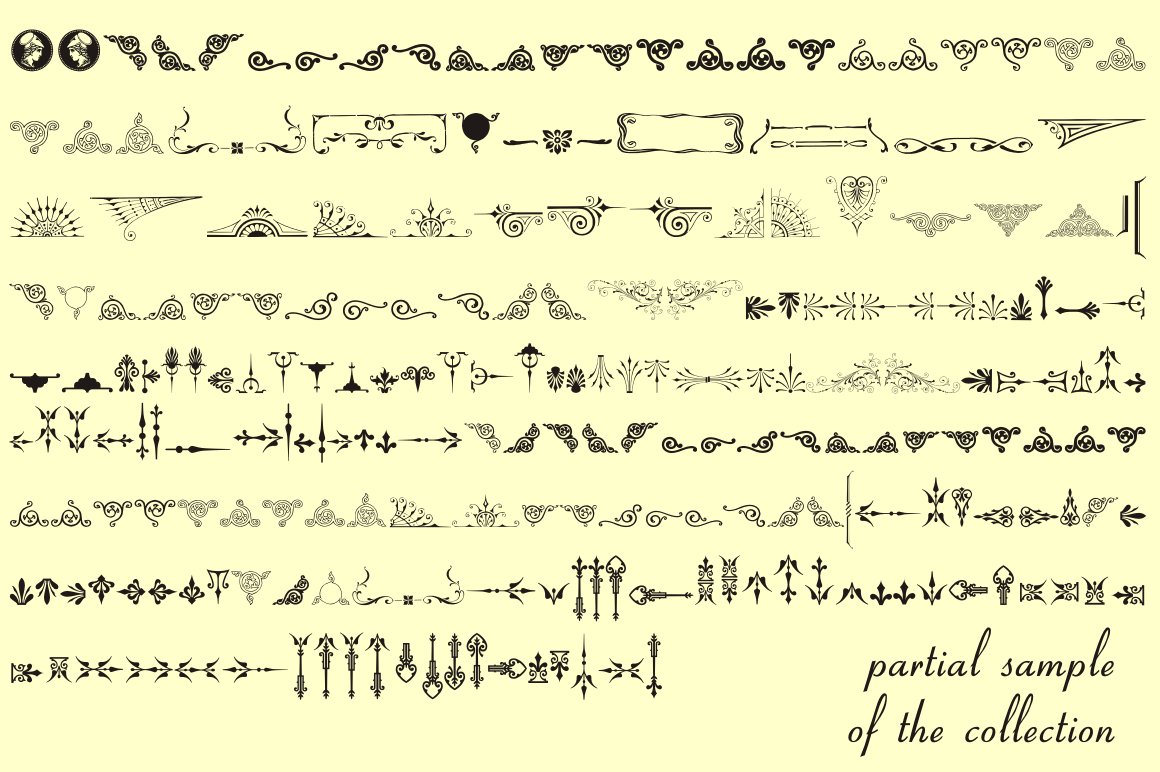 partial sample
of the collection